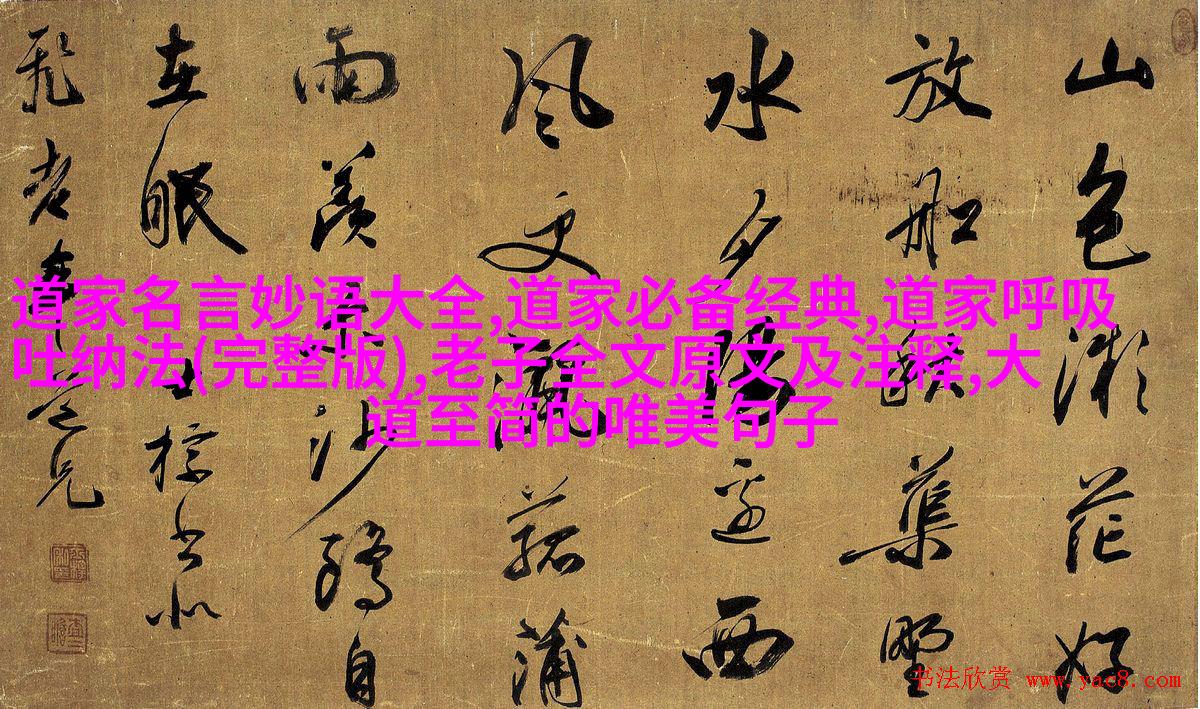 道家名言妙语大全,道家必备经典,道家呼吸
吐纳法(完整版),老子全文原文及注释,大
道至简的唯美句子
山色微茫好
放船集野
水夕陽還西
風更菰蒲
雨羨沙鷗自
在眠士標書似
老道兄
书法欣赏 www.yac8.com